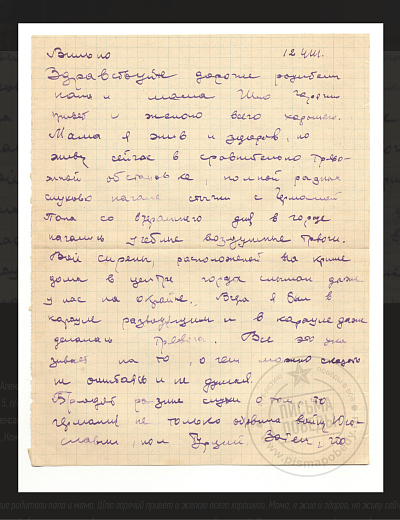 Вильно 12 VIII.
Здравствуйте дорогие родители
папа и мама Шлю горячий
привет и желаю всего хорошего.
Мама я жив и здоров, но
живу сейчас в сравнительно трево-
жной обстановке, полной разных
слухов о начале стычки с Германией
Пока со вчерашнего дня в городе
начались учебные воздушные тревоги.
Вой сирены расположеной на крыше
дома в центре города слышен даже
у нас на окрайне. Вчера я был в
карауле разводящим и в карауле даже
делалась тревога. Все это
зывает на то, о чем можно сказать
не ошибаясь и не думая.
Бродят разные слухи о том что
германия не только объявила войну Юго-
славии, но и Турции Затем, что
ПИСЬМА
ПОБЕДЫ
www.pismapobedy.